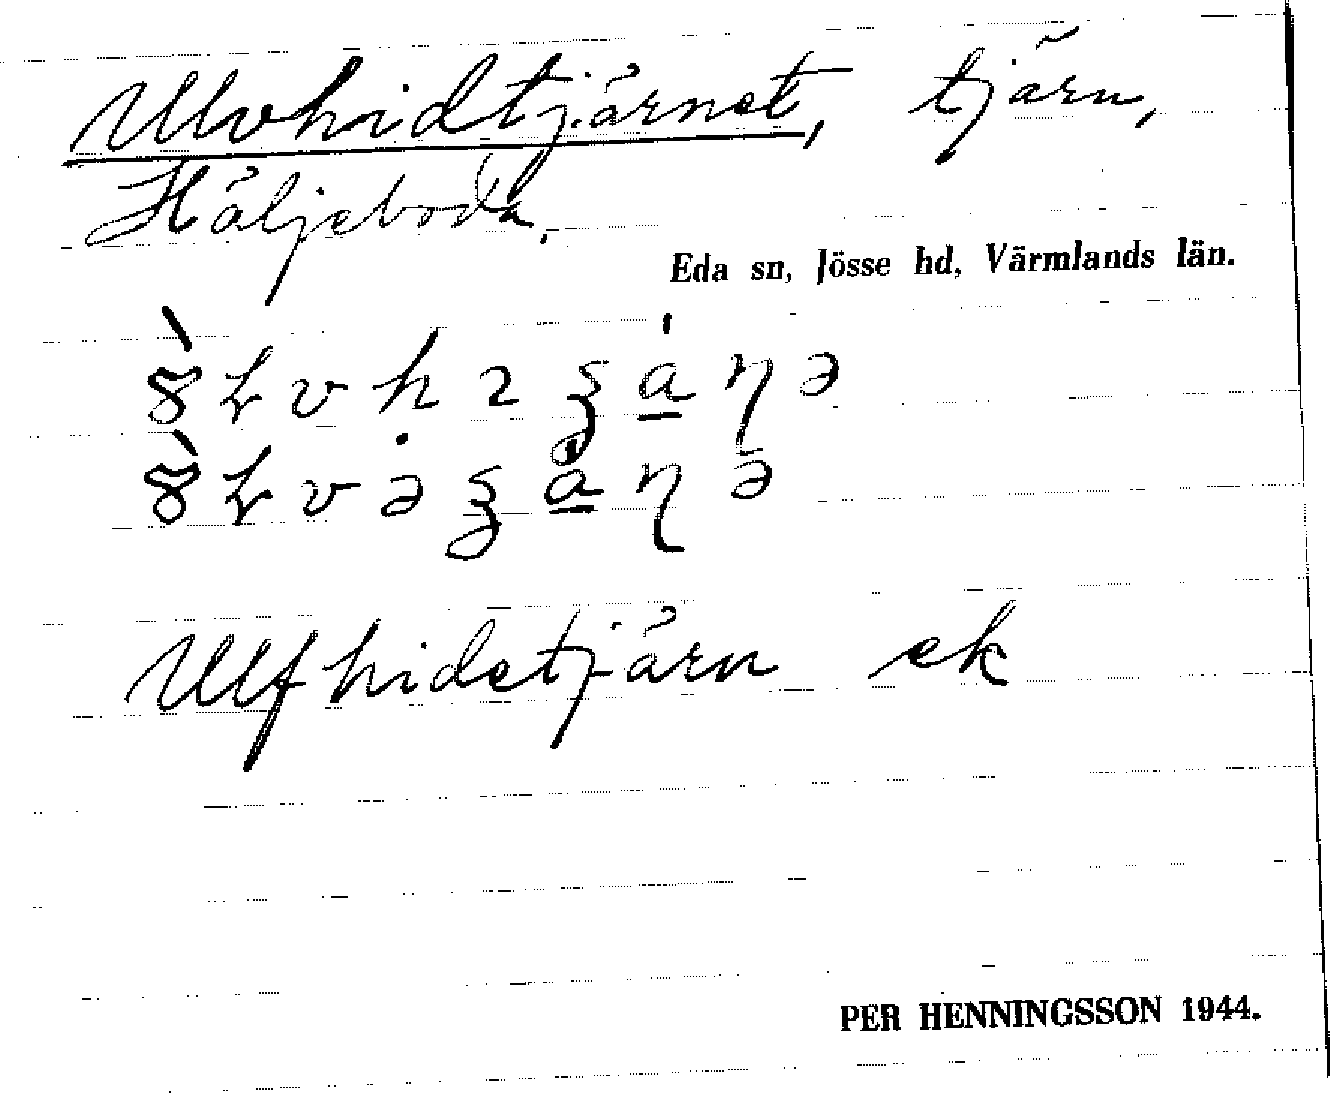 Ulvhidtjärnet, tjärn,
Häljeboda.
Eda sn, Jösse hd, Värmlands län.
Ulfhidetjärn ek
PER HENNINGSSON 1944.